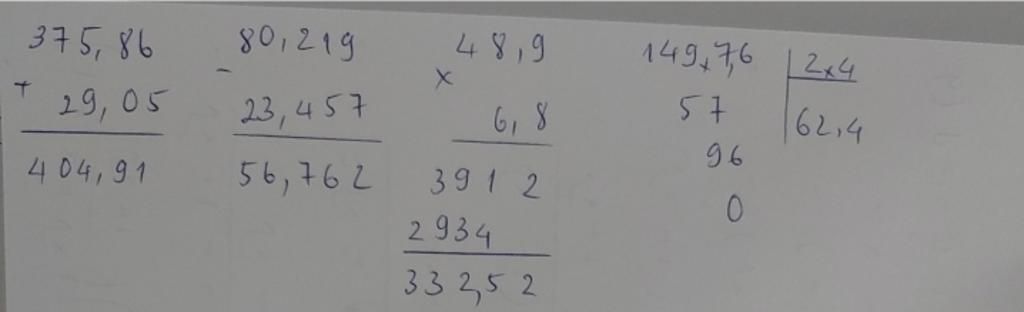 375,86
+ 29,05
404,91
80,219
- 23,457
56,762
48,9
x 6,8
3912
2934
332,52
149,7,6 2,4
57 62,4
96
0